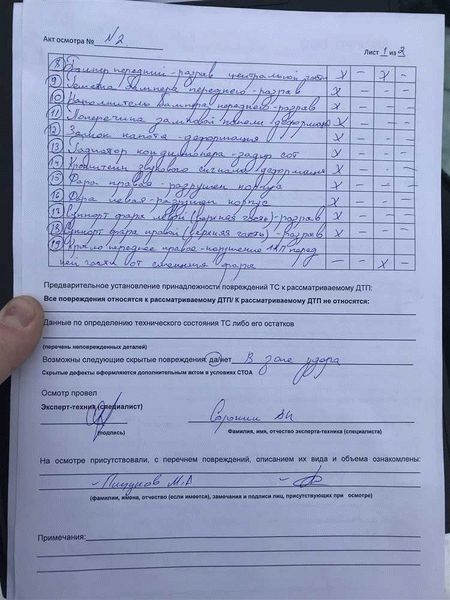 Акт осмотра № N2
Лист 1 из 2
8 Бампер передний - разрыв центральной части X - X -
9 бампера переднего - разрыв X - - -
10 Наполнитель бампера переднего - разрыв X - - -
11 Поперечина замковой панели деформация X - - -
12 Замок капота - деформация X - - -
13 Радиатор кондиционера - задир сот X - - -
14 Кронштейн звукового сигнала деформация X - - -
15 Фара правая - разрушен корпус X - - -
16 Фара левая - разрушен корпус X - - -
17 Суппорт фары левый (верхняя часть) - разрыв X - - -
18 Суппорт фары правой (верхняя часть) - разрыв X - - -
19 Крыло переднее правое - нарушение ЛКП перед
ней части от смещения фары - - X -
Предварительное установление принадлежности повреждений ТС к рассматриваемому ДТП:
Все повреждения относятся к рассматриваемому ДТП/ К рассматриваемому ДТП не относятся:
Данные по определению технического состояния ТС либо его остатков
(перечень неповрежденных деталей)
Возможны следующие скрытые повреждения: да/нет В зоне удара
Скрытые дефекты оформляется дополнительным актом в условиях СТОА
Осмотр провел
Эксперт-техник (специалист)
(подпись)
Фамилия, имя, отчество эксперта-техника (специалиста)
На осмотре присутствовали, с перечнем повреждений, описанием их вида и объема ознакомлены:
(фамилии, имена, отчество (если имеется), замечания и подписи лиц, присутствующих при осмотре)
Примечания: